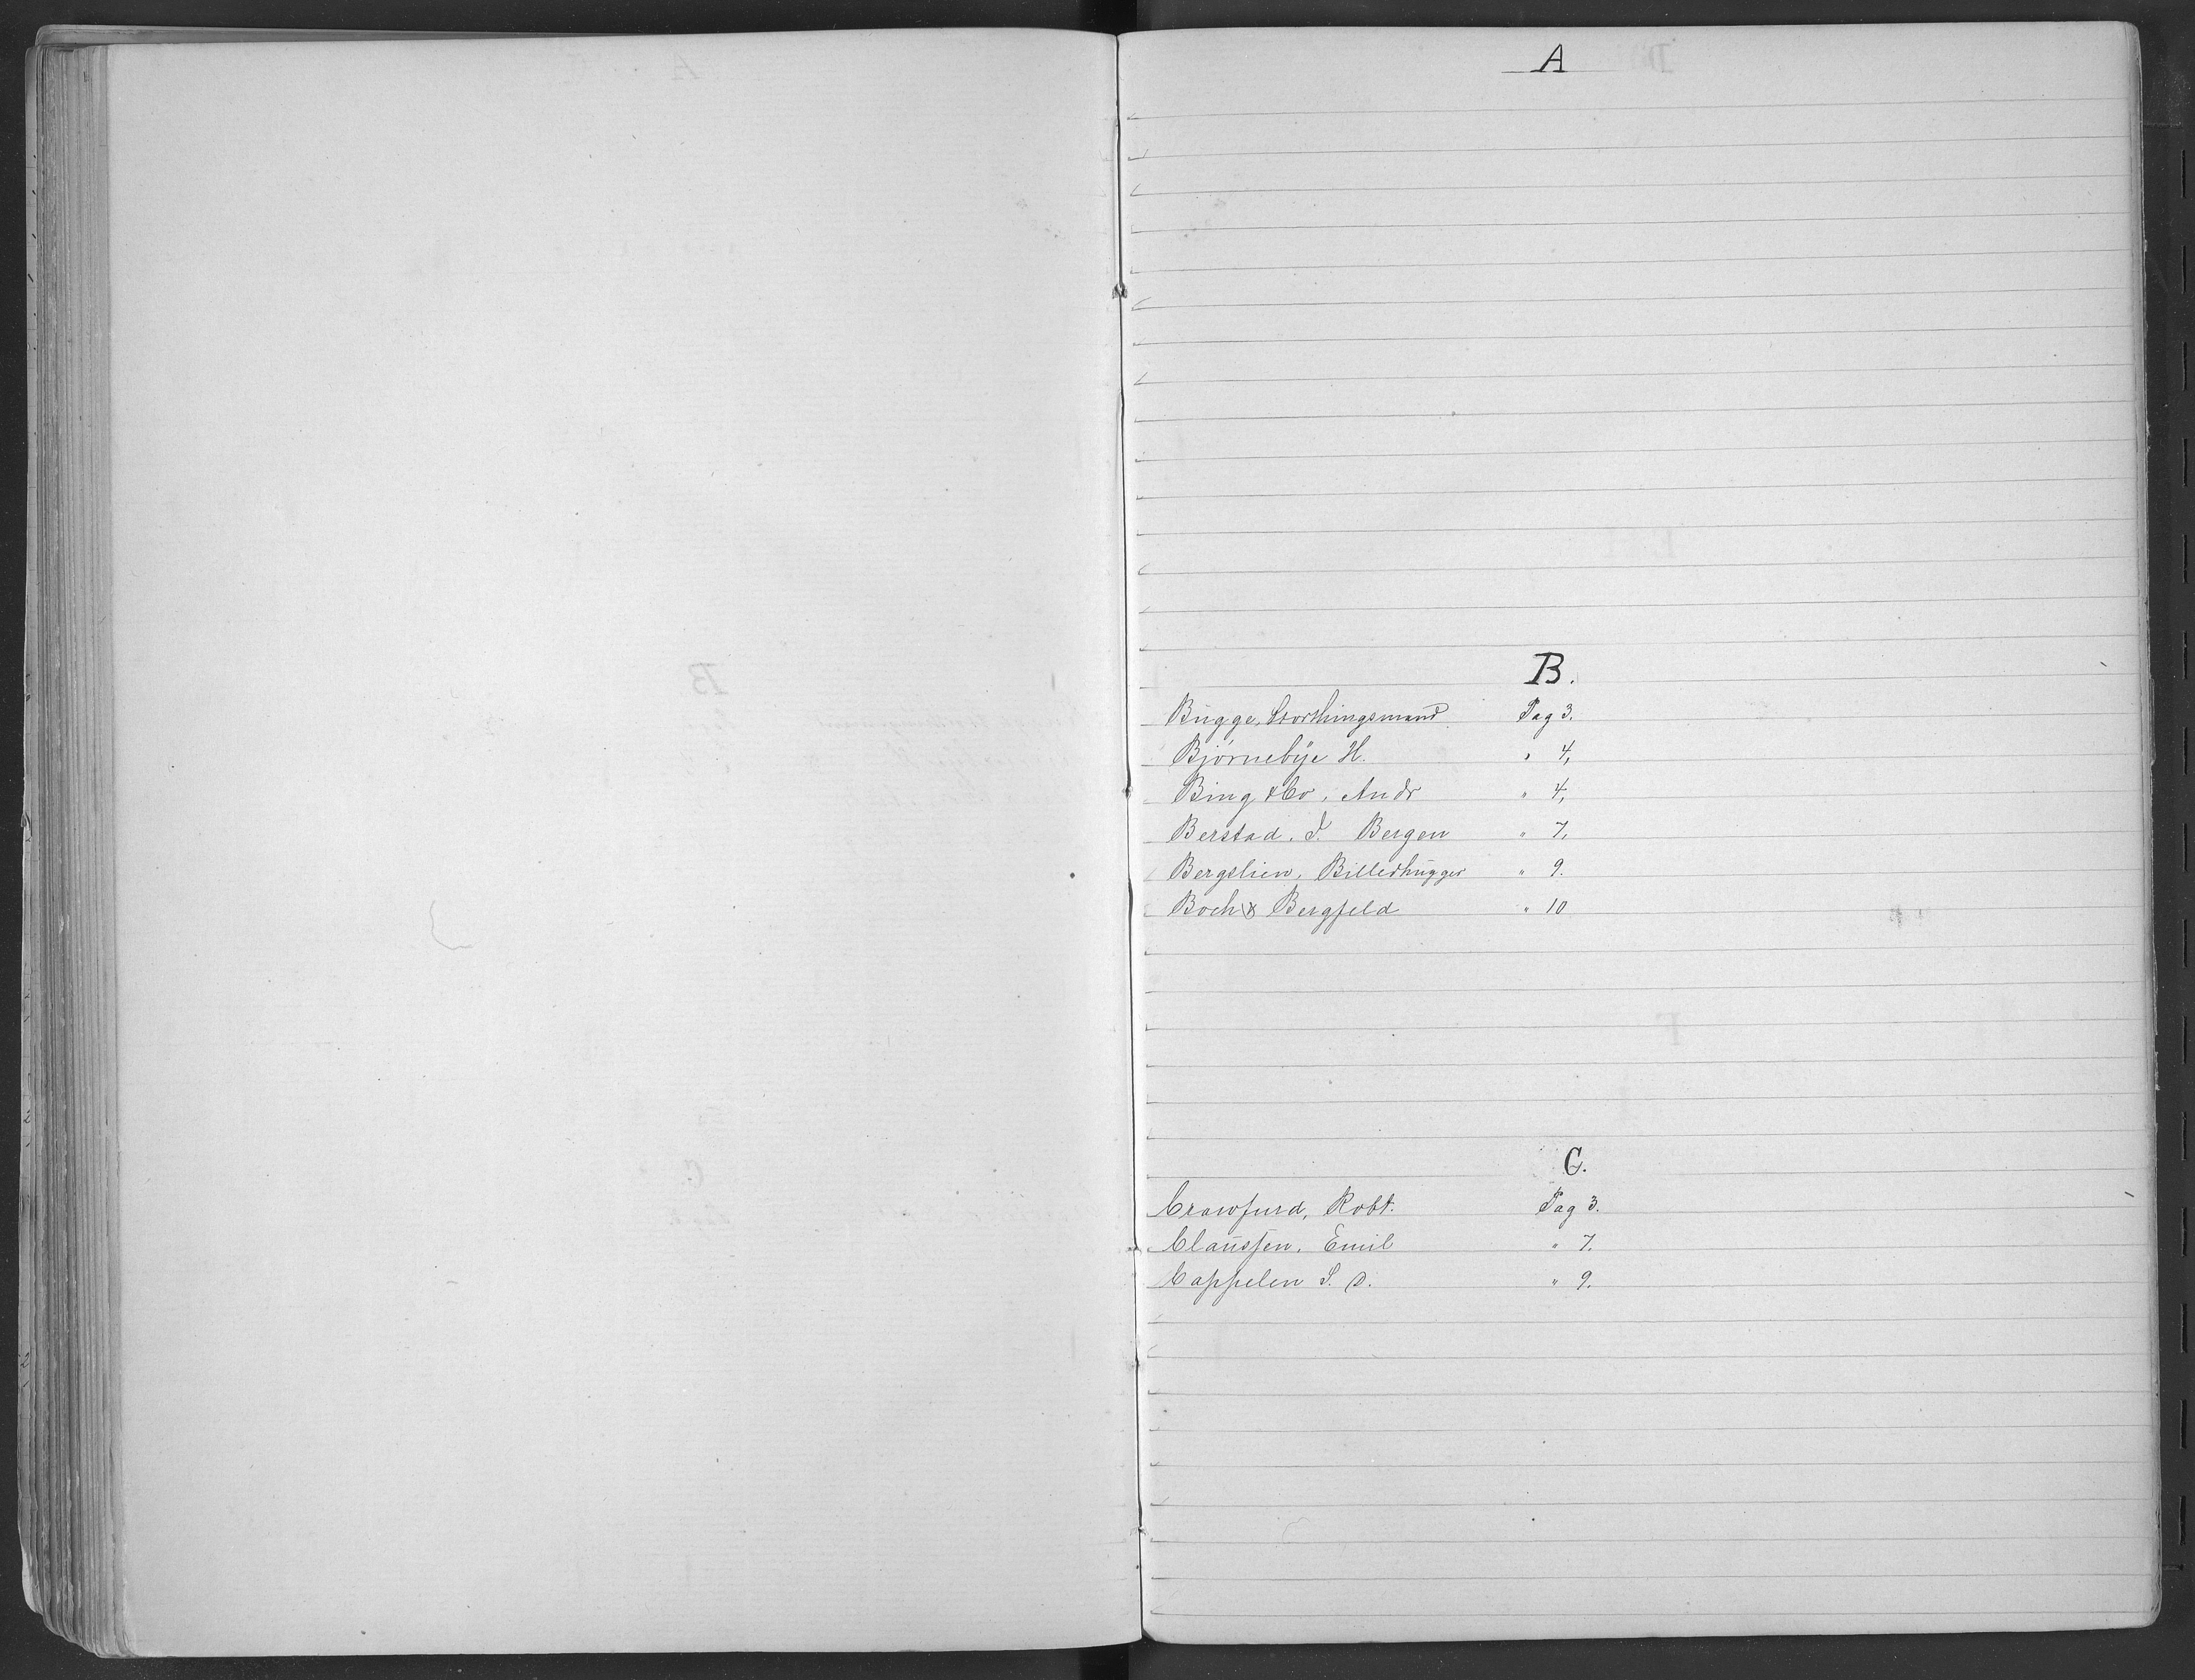 A
B.
Bugge, Storthingsmand Pag 3.
Bjørnebye H. " 4,
Bing & Co, Andr " 4,
Berstad. J. Bergen " 7,
Bergslien, Billedhugger " 9.
Boch & Bergfeld " 10
C.
Crawfurd, Robt. Pag 3.
Claussen, Emil " 7.
Cappelen S. D. " 9.